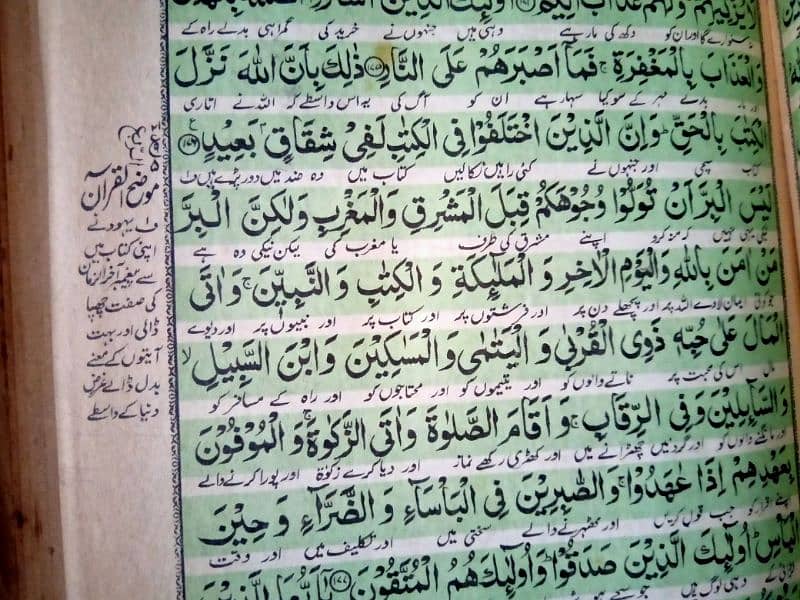 وَلَا يُزَكِّيْهِمْ وَلَهُمْ عَذَابٌ اَلِيْمٌ اُولٰٓئِكَ الَّذِيْنَ اشْتَرَوُا الضَّلٰلَةَ بِالْهُدٰى
سنوارے گا اور ان کو دکھ کی مار ہے وہی ہیں جنہوں نے خرید کی گمراہی بدلے راہ کے
وَالْعَذَابَ بِالْمَغْفِرَةِ ۚ فَمَآ اَصْبَرَهُمْ عَلَى النَّارِ ﴿۱۷۵﴾ ذٰلِكَ بِاَنَّ اللّٰهَ نَزَّلَ
بدلے مہر کے سو کیا سہار ہے ان کو آگ کی یہ اس واسطے کہ اللہ نے اتاری
الْكِتٰبَ بِالْحَقِّ ؕ وَاِنَّ الَّذِيْنَ اخْتَلَفُوْا فِى الْكِتٰبِ لَفِىْ شِقَاقٍۭ بَعِيْدٍ ﴿۱۷۶﴾
کتاب سچی اور جنہوں نے کئی راہیں نکالیں کتاب میں وہ ضد میں دور پڑے ہیں ف۱
لَيْسَ الْبِرَّ اَنْ تُوَلُّوْا وُجُوْهَكُمْ قِبَلَ الْمَشْرِقِ وَالْمَغْرِبِ وَلٰكِنَّ الْبِرَّ
نیکی یہی نہیں کہ منہ کرو اپنے مشرق کی طرف یا مغرب کی لیکن نیکی وہ ہے
مَنْ اٰمَنَ بِاللّٰهِ وَالْيَوْمِ الْاٰخِرِ وَ الْمَلٰٓئِكَةِ وَ الْكِتٰبِ وَ النَّبِيّٖنَ ۚ وَ اٰتَى
جو کوئی ایمان لاوے اللہ پر اور پچھلے دن پر اور فرشتوں پر اور کتاب پر اور نبیوں پر اور دیوے
الْمَالَ عَلٰى حُبِّهٖ ذَوِى الْقُرْبٰى وَ الْيَتٰمٰى وَالْمَسٰكِيْنَ وَ ابْنَ السَّبِيْلِ ۙ
مال اس کی محبت پر ناتے والوں کو اور یتیموں کو اور محتاجوں کو اور راہ کے مسافر کو
وَ السَّآئِلِيْنَ وَ فِى الرِّقَابِ ۚ وَ اَقَامَ الصَّلٰوةَ وَ اٰتَى الزَّكٰوةَ ۚ وَ الْمُوْفُوْنَ
اور مانگنے والوں کو اور گردنیں چھڑانے میں اور کھڑی رکھے نماز اور دیا کرے زکوٰۃ اور پورا کرنے والے
بِعَهْدِهِمْ اِذَا عٰهَدُوْا ۚ وَ الصّٰبِرِيْنَ فِى الْبَاْسَآءِ وَ الضَّرَّآءِ وَ حِيْنَ
اپنے اقرار کو جب قول کریں اور ٹھہرنے والے سختی میں اور تکلیف میں اور وقت
الْبَاْسِ ؕ اُولٰٓئِكَ الَّذِيْنَ صَدَقُوْا ؕ وَ اُولٰٓئِكَ هُمُ الْمُتَّقُوْنَ ﴿۱۷۷﴾ يٰٓاَيُّهَا الَّذِيْنَ
لڑائی کے وہی لوگ ہیں جو سچے
موضح القرآن
ف۱ یہود نے
اپنی کتاب میں
سے پیغمبر آخر الزمان
کی صفت چھپا
ڈالی اور بہت
آیتوں کے معنے
بدل ڈالے غرض
دنیا کے واسطے